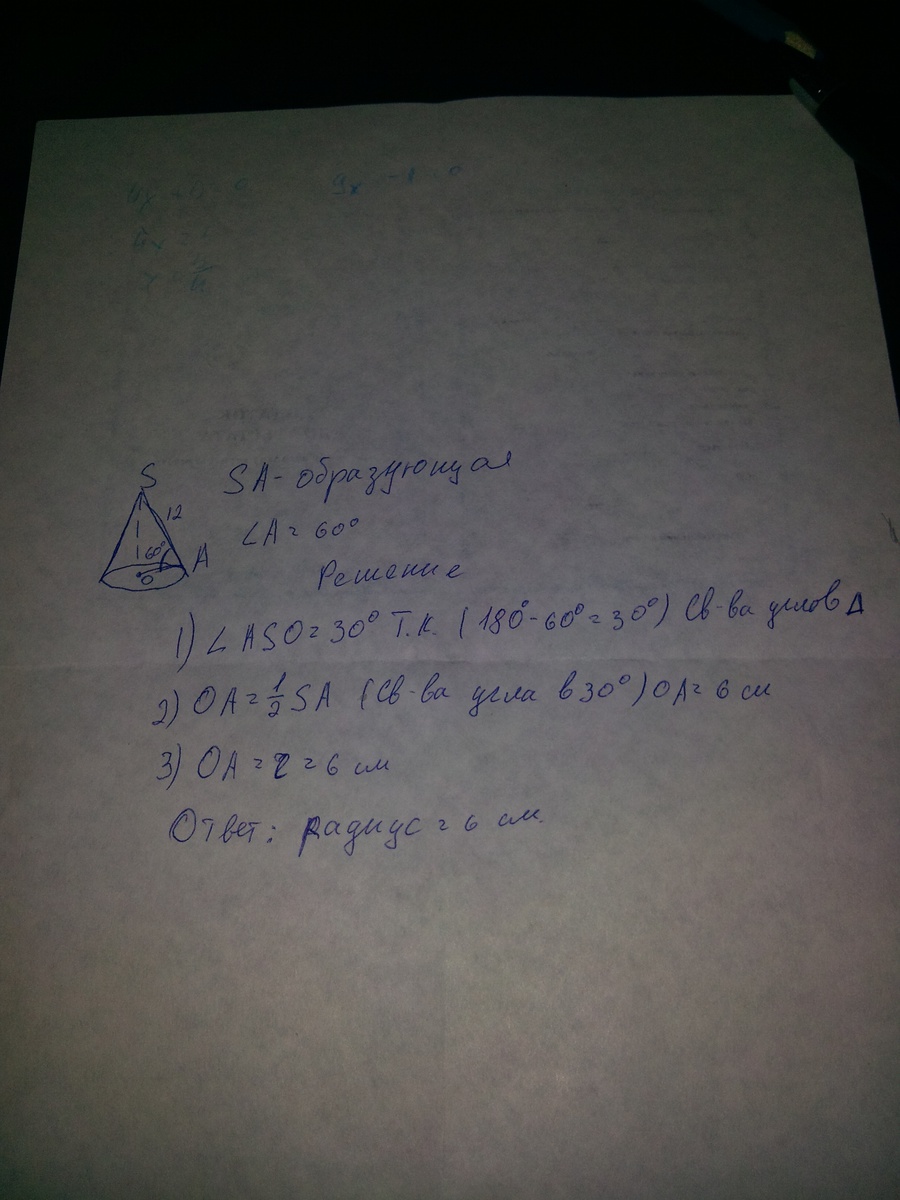 S
12
60°
A
O
SA - образующая
∠A = 60°
Решение
1) ∠ASO = 30° Т.К. (180° - 60° = 30°) Св-ва углов Δ
2) OA = 1/2 SA (Св-ва угла в 30°) OA = 6 см
3) OA = r = 6 см
Ответ: радиус = 6 см.